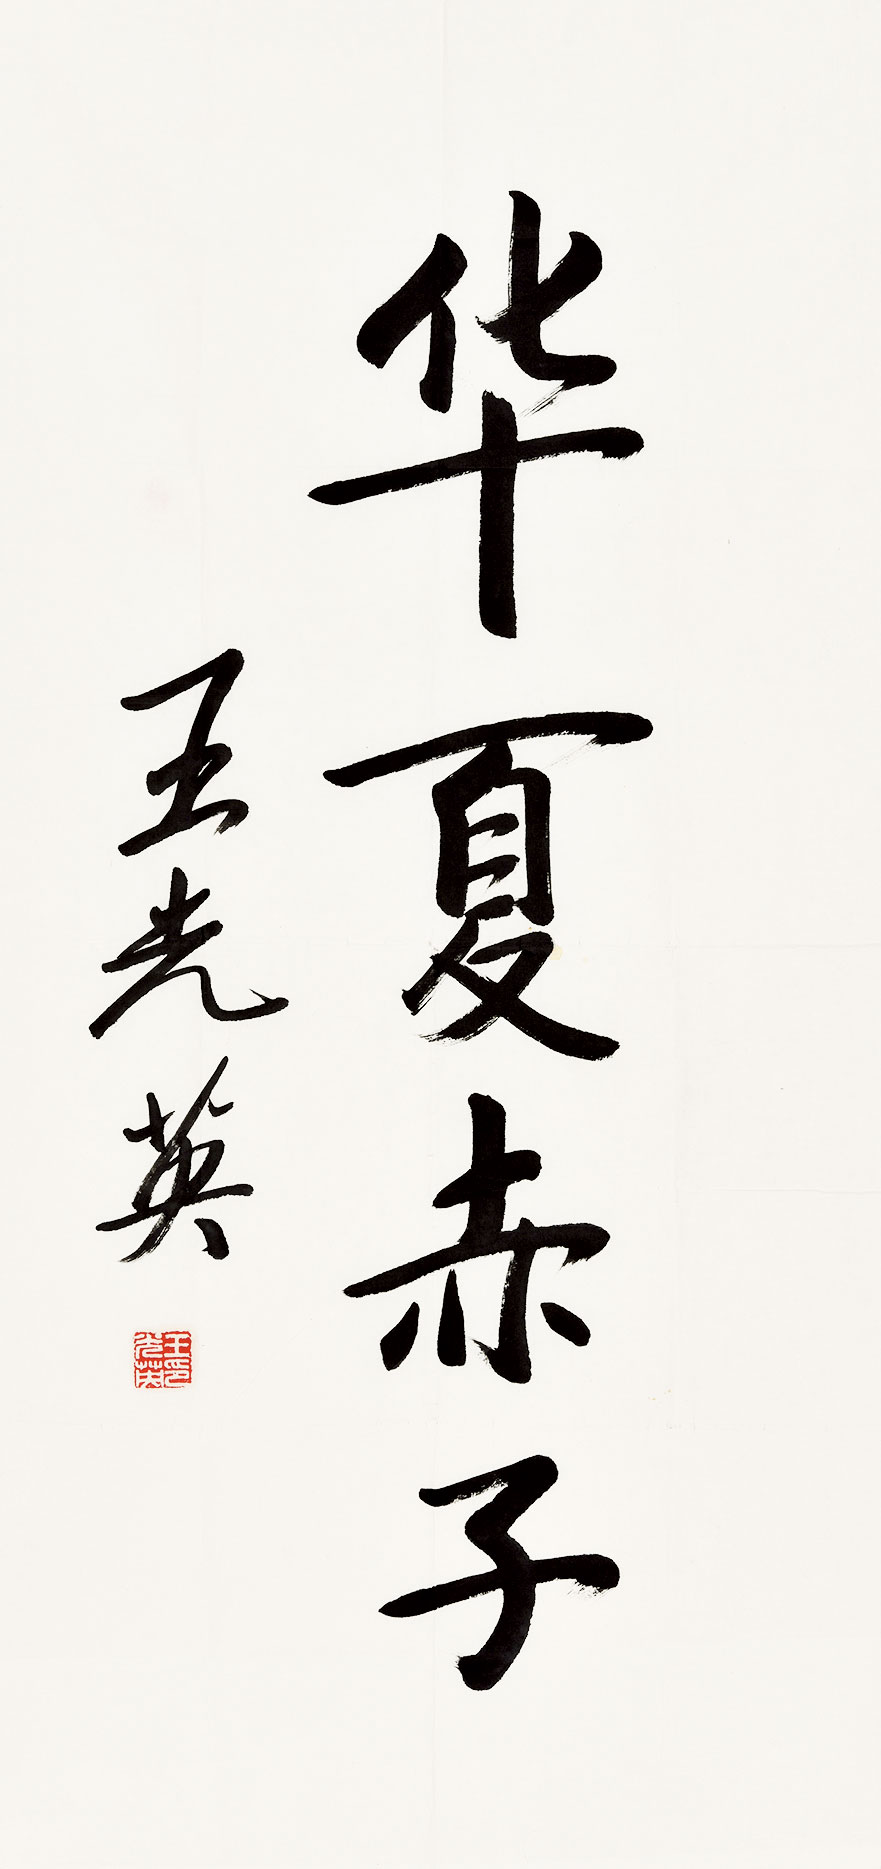 华夏赤子
王光英
王光英印